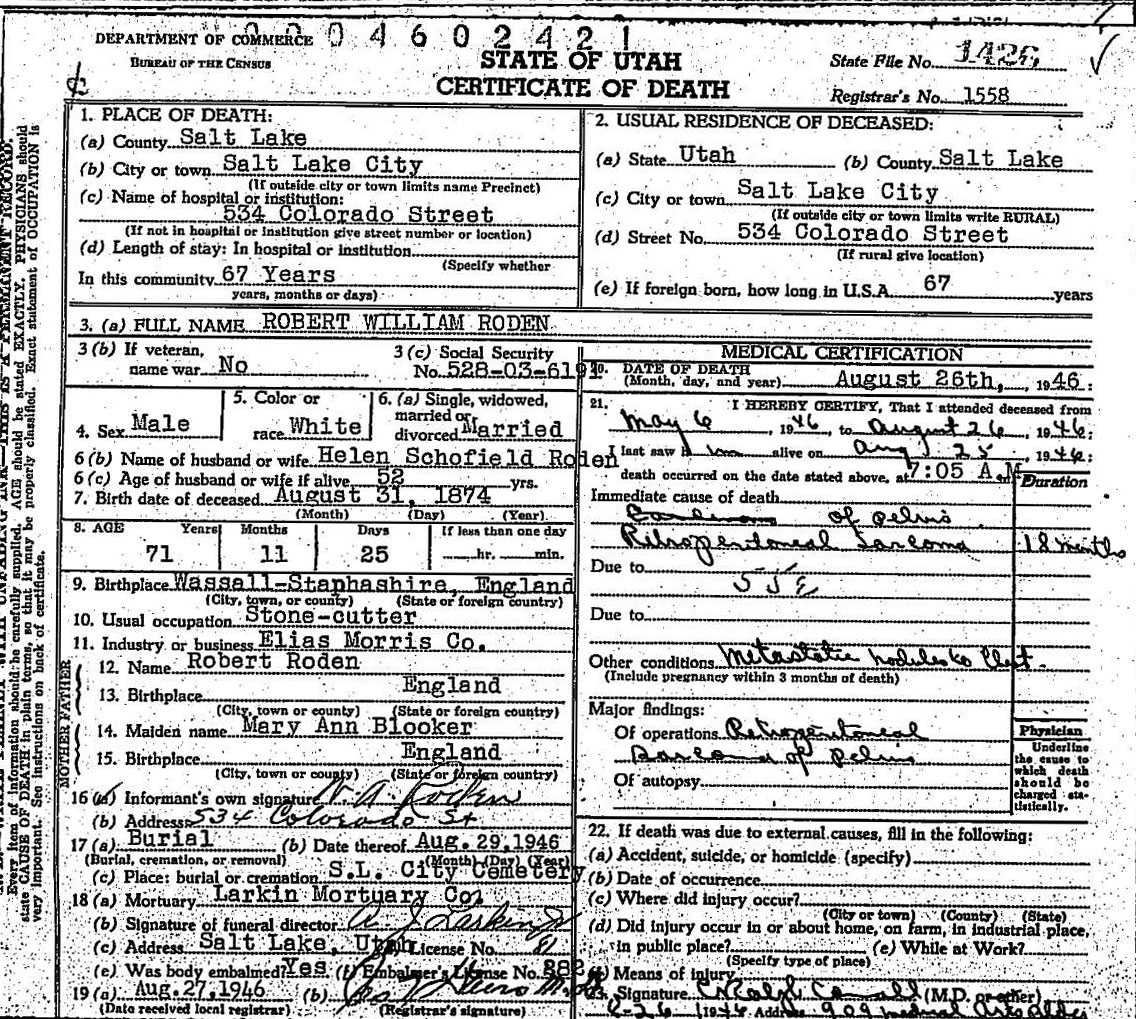 0004602421
DEPARTMENT OF COMMERCE
BUREAU OF THE CENSUS
STATE OF UTAH
CERTIFICATE OF DEATH
State File No. 1426
Registrar's No. 1558
1. PLACE OF DEATH:
(a) County Salt Lake
(b) City or town Salt Lake City
(If outside city or town limits name Precinct)
(c) Name of hospital or institution:
534 Colorado Street
(If not in hospital or institution give street number or location)
(d) Length of stay: In hospital or institution
(Specify whether
In this community 67 Years
years, months or days)
2. USUAL RESIDENCE OF DECEASED:
(a) State Utah (b) County Salt Lake
(c) City or town Salt Lake City
(If outside city or town limits write RURAL)
(d) Street No. 534 Colorado Street
(If rural give location)
(e) If foreign born, how long in U.S.A. 67 years
3. (a) FULL NAME ROBERT WILLIAM RODEN
3 (b) If veteran,
name war No
3 (c) Social Security
No. 528-03-6191
4. Sex Male
5. Color or
race White
6. (a) Single, widowed,
married or
divorced Married
6 (b) Name of husband or wife Helen Schofield Roden
6 (c) Age of husband or wife if alive 52 yrs.
7. Birth date of deceased August 31, 1874
(Month) (Day) (Year)
8. AGE Years Months Days If less than one day
71 11 25 hr. min.
9. Birthplace Wassall-Staphashire, England
(City, town, or county) (State or foreign country)
10. Usual occupation Stone-cutter
11. Industry or business Elias Morris Co.
FATHER
12. Name Robert Roden
13. Birthplace England
(City, town or county) (State or foreign country)
MOTHER
14. Maiden name Mary Ann Blooker
15. Birthplace England
(City, town or county) (State or foreign country)
16 (a) Informant's own signature W. A. Roden
(b) Address 534 Colorado St
17 (a) Burial (b) Date thereof Aug. 29, 1946
(Burial, cremation, or removal) (Month) (Day) (Year)
(c) Place: burial or cremation S.L. City Cemetery
18 (a) Mortuary Larkin Mortuary Co.
(b) Signature of funeral director
(c) Address Salt Lake, Utah License No. 81
(e) Was body embalmed? Yes (f) Embalmer's License No. 282
19 (a) Aug. 27, 1946 (b)
(Date received local registrar) (Registrar's signature)
MEDICAL CERTIFICATION
20. DATE OF DEATH
(Month, day, and year) August 26th, 1946
21. I HEREBY CERTIFY, That I attended deceased from
May 6, 1946, to August 26, 1946;
I last saw him alive on Aug 25 1946
death occurred on the date stated above, at 7:05 A.M.
Duration
Immediate cause of death
of pelvis
Retroperitoneal Sarcoma 18 months
Due to
55E
Due to
Other conditions Metastatic nodules to Chest.
(Include pregnancy within 3 months of death)
Major findings:
Of operations Retroperitoneal
Sarcoma of Pelvis
Of autopsy
Physician
Underline
the cause to
which death
should be
charged sta-
tistically.
22. If death was due to external causes, fill in the following:
(a) Accident, suicide, or homicide (specify)
(b) Date of occurrence
(c) Where did injury occur?
(City or town) (County) (State)
(d) Did injury occur in or about home, on farm, in industrial place,
in public place? (e) While at Work?
(Specify type of place)
(f) Means of injury
23. Signature (M.D. or other)
8-26 1946 Address 909 Medical Arts Bldg
Every item of information should be carefully supplied. AGE should be stated EXACTLY. PHYSICIANS should
state CAUSE OF DEATH in plain terms, so that it may be properly classified. Exact statement of OCCUPATION is
very important. See instructions on back of certificate.